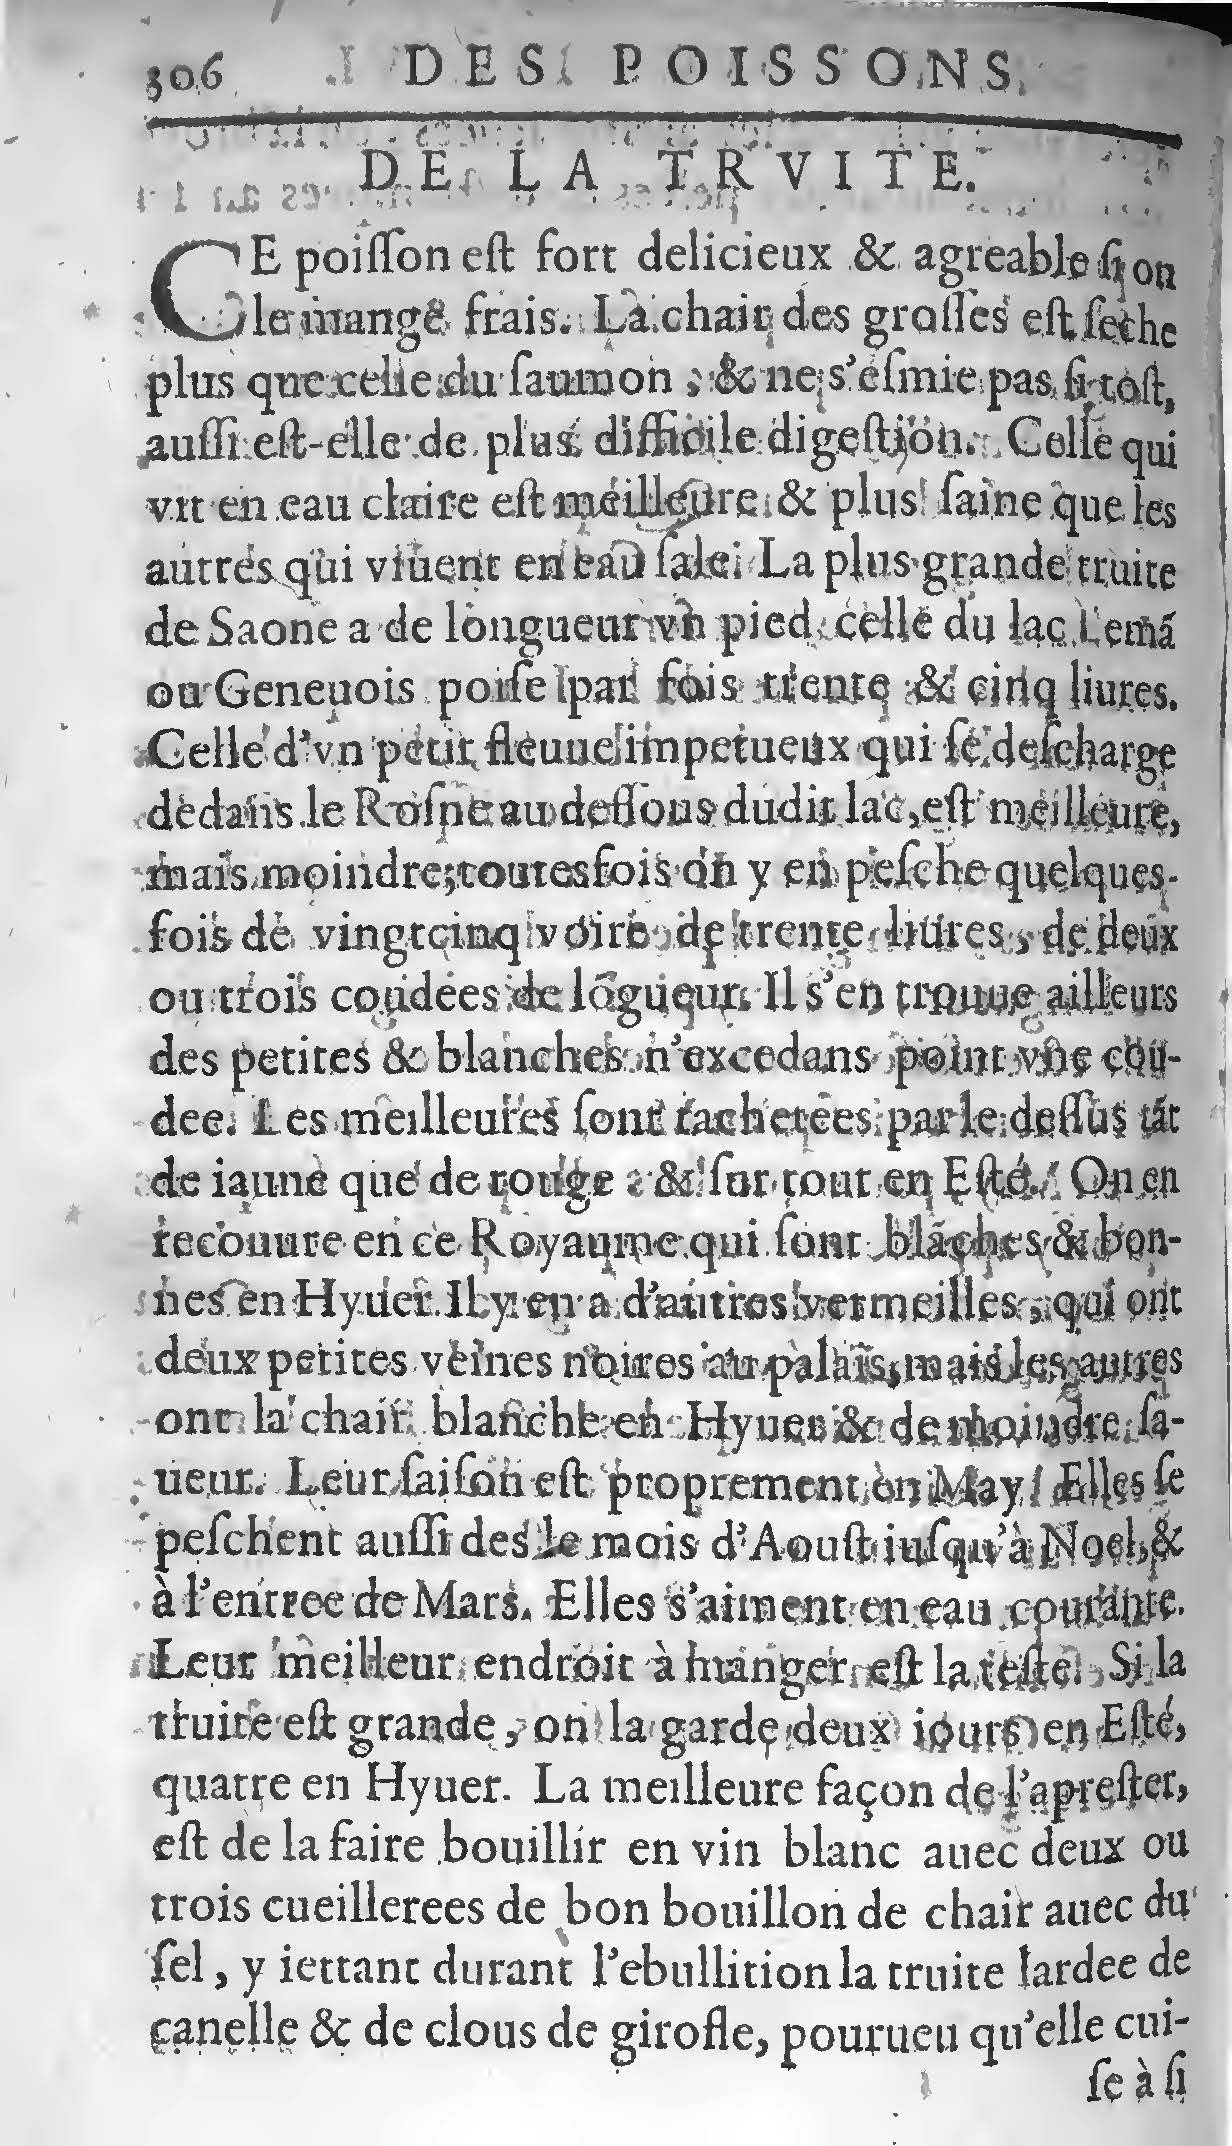 306 DES POISSONS
DE LA TRVITE.
CE poiſſon eſt fort delicieux & agreable ſi on
le mange frais. La chair des groſſes eſt ſeche
plus que celle du ſaumon, & ne s'eſmie pas ſi toſt,
auſſi eſt-elle de plus difficile digeſtion. Celle qui
vit en eau claire eſt meilleure & plus ſaine que les
autres qui viuent en eau ſale. La plus grande truite
de Saone a de longueur vn pied, celle du lac Lemã
ou Geneuois poiſe par fois trente & cinq liures.
Celle d'vn petit fleuue impetueux qui ſe deſcharge
dedans le Roſne au deſſous dudit lac, eſt meilleure,
mais moindre; toutesfois on y en peſche quelques-
fois de vingtcinq voire de trente liures, de deux
ou trois coudées de lõgueur. Il s'en trouue ailleurs
des petites & blanches n'excedans point vne cou-
dee. Les meilleures ſont tachetées par le deſſus tãt
de iaune que de rouge : & ſur tout en Eſté. On en
recouure en ce Royaume qui ſont blãches & bon-
nes en Hyuer. Il y en a d'autres vermeilles, qui ont
deux petites veines noires au palais, mais les autres
ont la chair blanche en Hyuer & de moindre ſa-
ueur. Leur ſaiſon eſt proprement en May. Elles ſe
peſchent auſſi des le mois d'Aouſt iuſqu'à Noel, &
à l'entree de Mars. Elles s'aiment en eau courante.
Leur meilleur endroit à manger eſt la teſte. Si la
truite eſt grande, on la garde deux iours en Eſté,
quatre en Hyuer. La meilleure façon de l'apreſter,
eſt de la faire bouillir en vin blanc auec deux ou
trois cueillerees de bon bouillon de chair auec du
ſel, y iettant durant l'ebullition la truite lardee de
canelle & de clous de girofle, pourueu qu'elle cui-
ſe à ſi